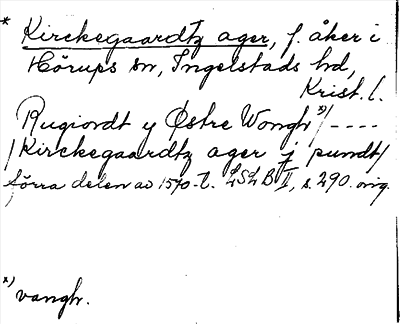 * Kirckegaardtz ager, f. åker i
Hörups sn, Ingelstads hd,
Krist. l.
Rugiordt y Østre Wongh *)/----
/Kirckegaardtz ager j pundt/
förra delen av 1570-t. LSLB II, s. 290. orig.
*) vangh.